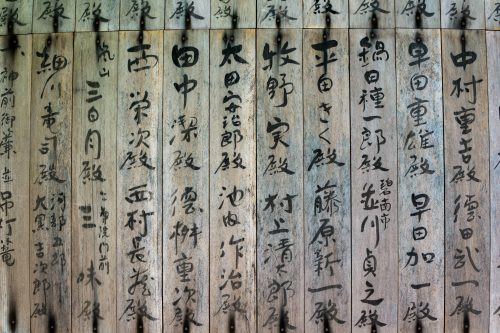 中村重吉殿 徳田武一殿
早田重雄殿 早田加一殿
鍋田種一郎殿 碧南市 並川貞之殿
平田きく殿 藤原新一殿
牧野実殿 村上清太郎殿
太田宇治郎殿 池内作治殿
田中潔殿 徳桝重次殿
西栄次殿 西村長蔵殿
嵐山 三日月殿 三味殿
細川竜司殿 河部五郎殿 大黒吉次郎殿
神前御簾 吊灯篭